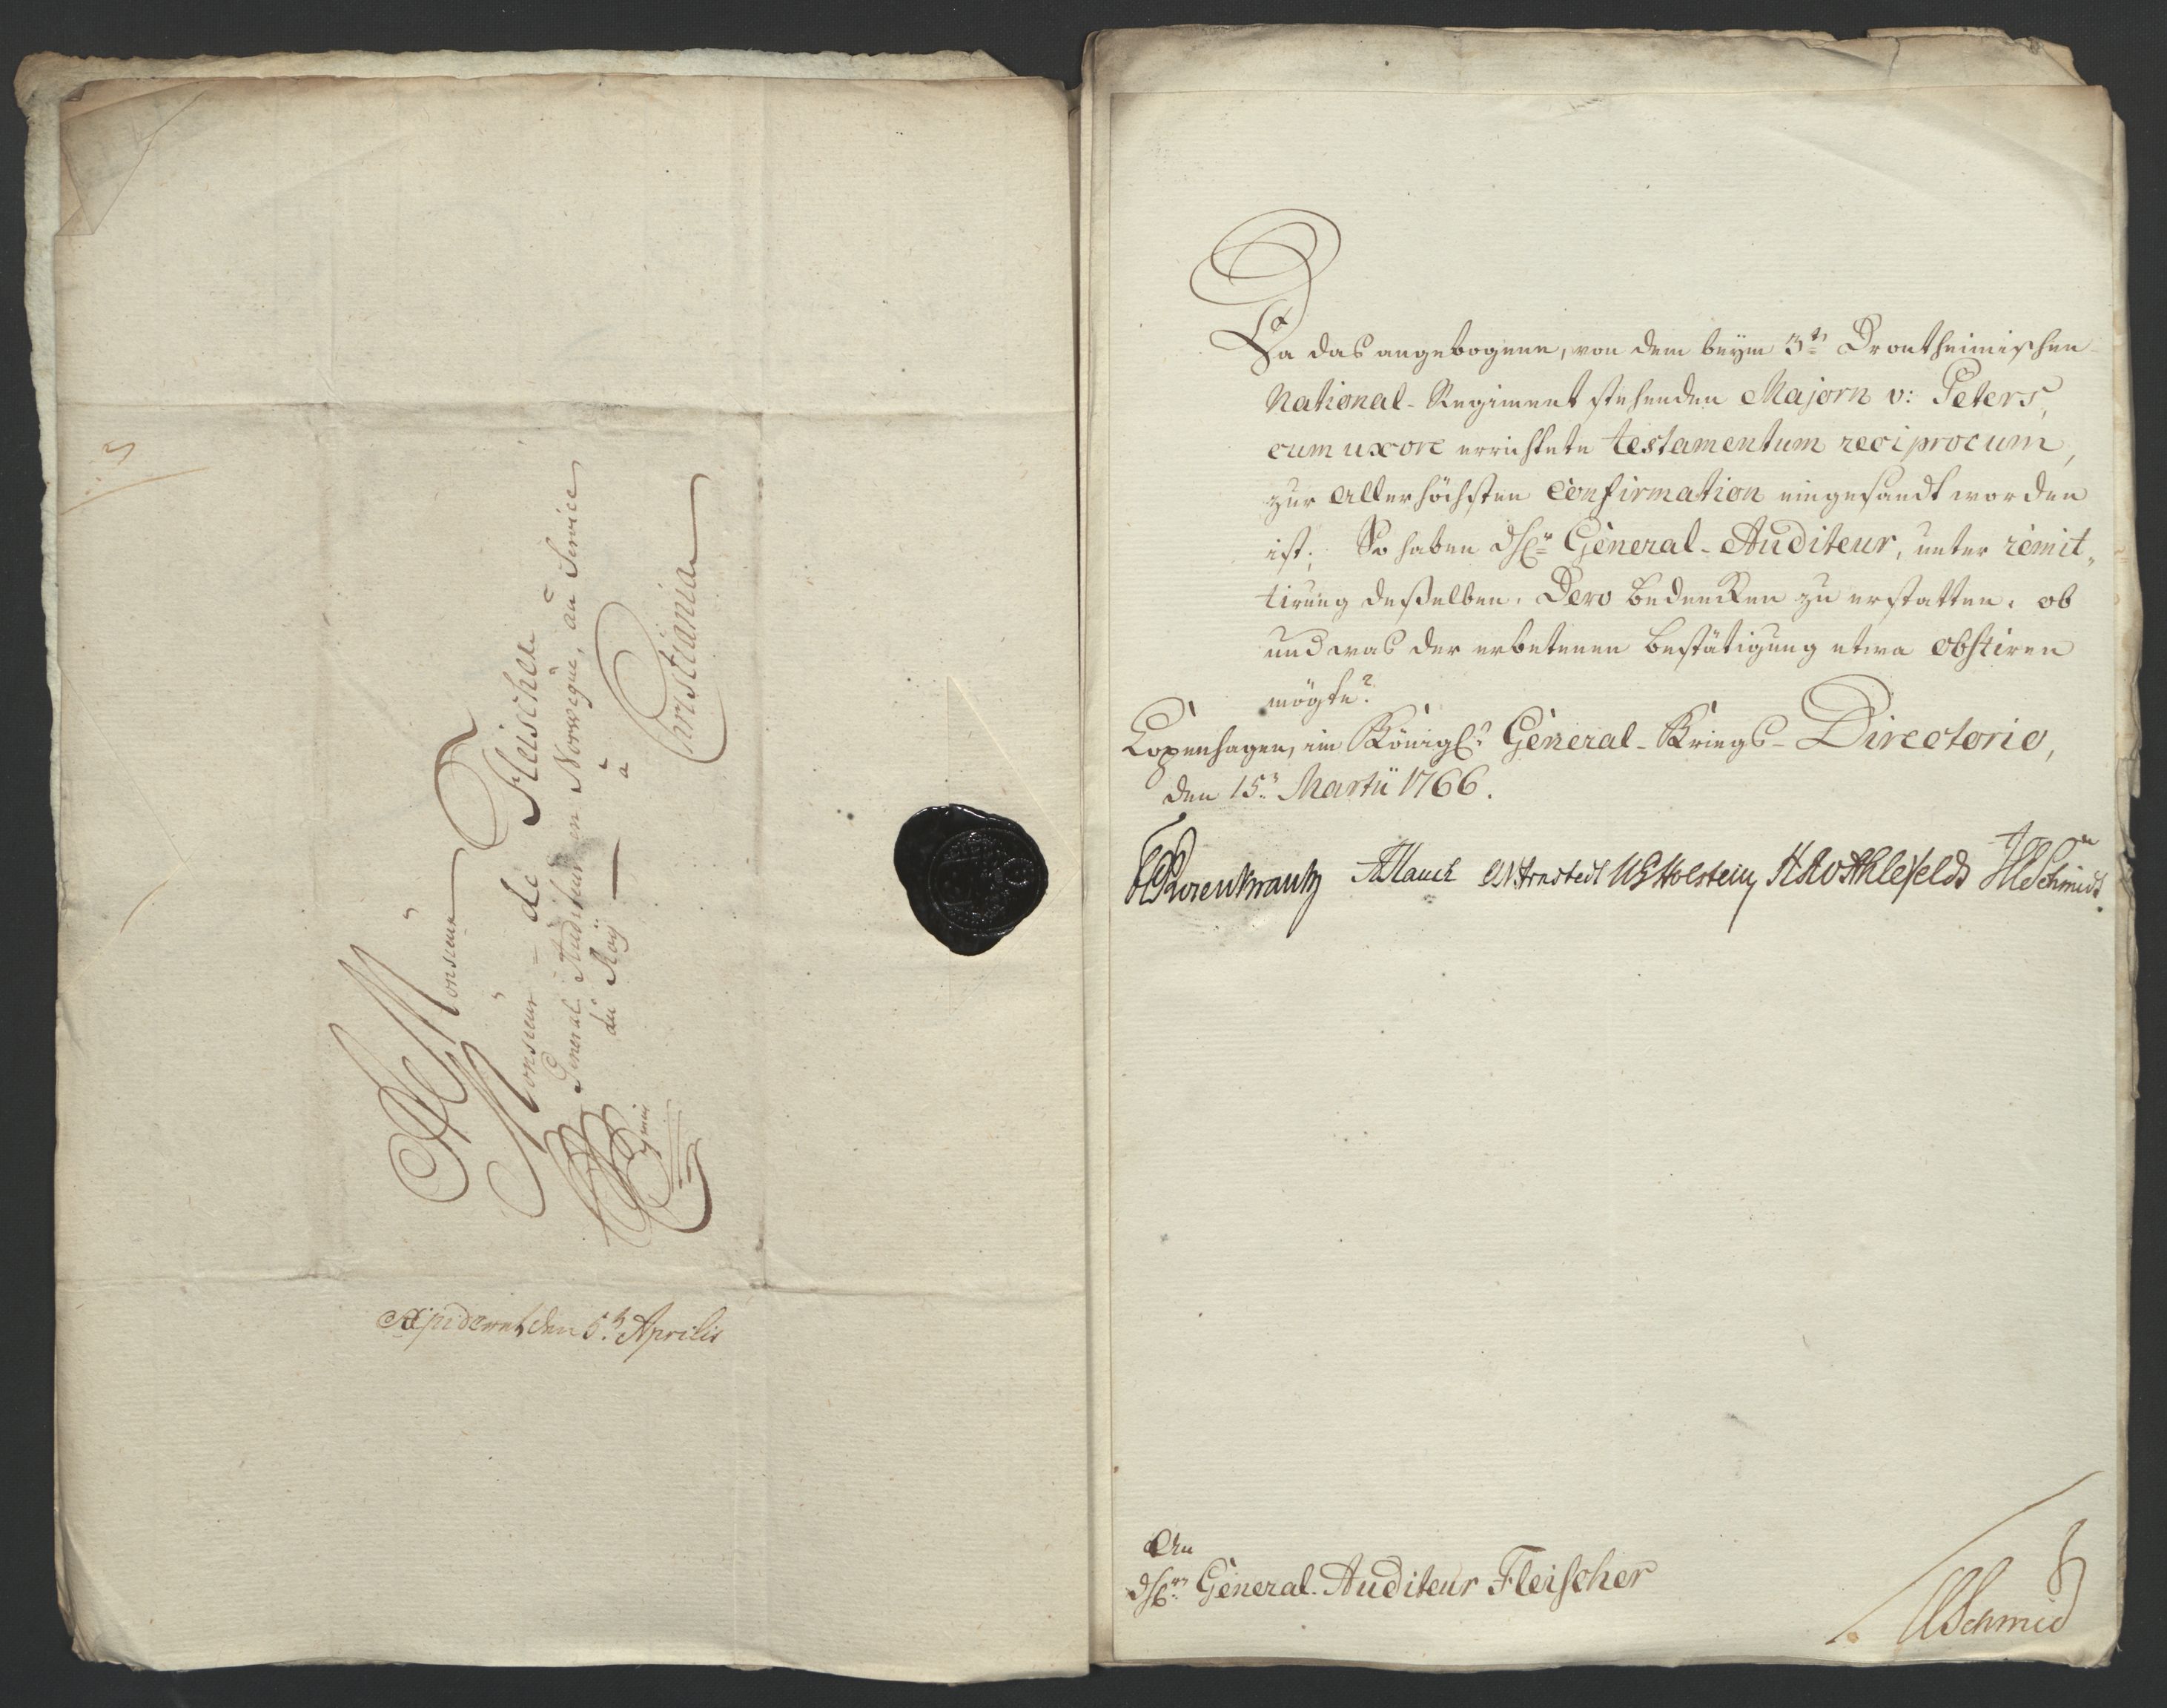 A Monsieur
Monsieur de Fleischer
General Auditeur en Norwegue, au Service
du Roÿ à
Christiania
Expideret den 5t Aprilis
Da das angebogene, von dem beym 3ten Drontheimischen
National-Regiment stehenden Majorn v: Peters,
cum uxore errichtete testamentum reciprocum,
zur Allerhöchsten Confirmation eingesandt worden
ist; So haben General-Auditeur, unter remit„
tirung deßelben, Dero Bedencken zu erstatten, ob
und was der erbetenen Bestätigung etwa obstiren
mögte?
Copenhagen, im Königl: General-Kriegs-Directorio,
den 15n Martii 1766.
Rosenkrantz Hauch Arnstedt Holstein Ahlefeldt Schmidt
An
General-Auditeur Fleischer
Schmid